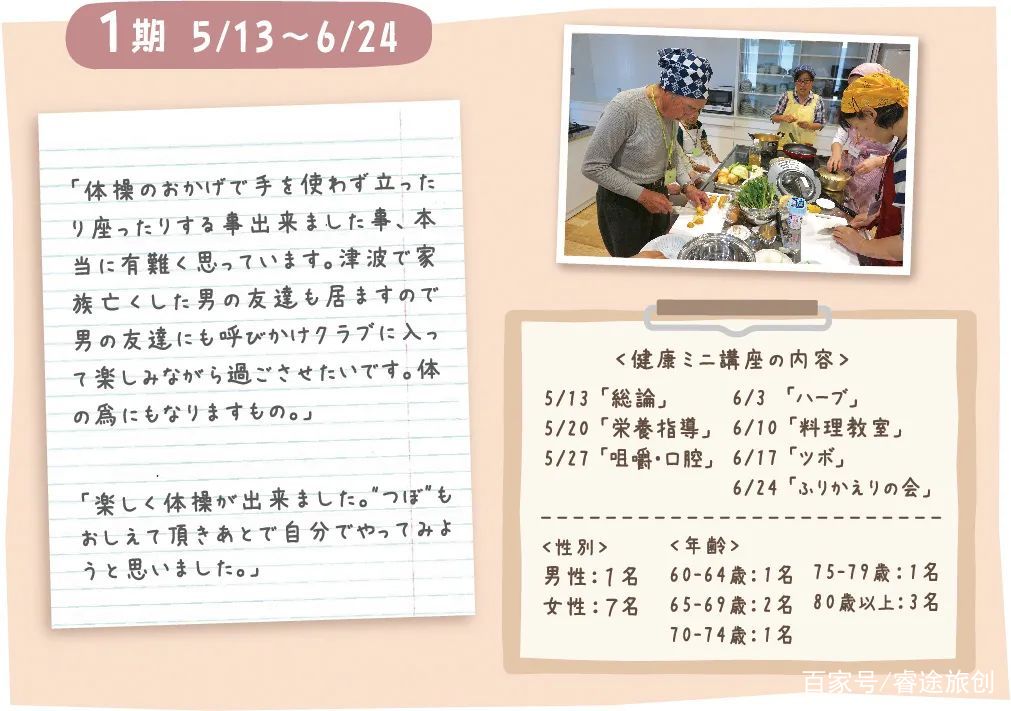 1期 5/13～6/24
「体操のおかげで手を使わず立った
り座ったりする事出来ました事、本
当に有難く思っています。津波で家
族亡くした男の友達も居ますので
男の友達にも呼びかけクラブに入っ
て楽しみながら過ごさせたいです。体
の為にもなりますもの。」
「楽しく体操が出来ました。"つぼ"も
おしえて頂きあとで自分でやってみよ
うと思いました。」
<健康ミニ講座の内容>
5/13「総論」 6/3 「ハーブ」
5/20「栄養指導」 6/10「料理教室」
5/27「咀嚼・口腔」 6/17「ツボ」
6/24「ふりかえりの会」
<性別> <年齢>
男性：1名 60-64歳：1名 75-79歳：1名
女性：7名 65-69歳：2名 80歳以上：3名
70-74歳：1名
百家号/睿途旅创